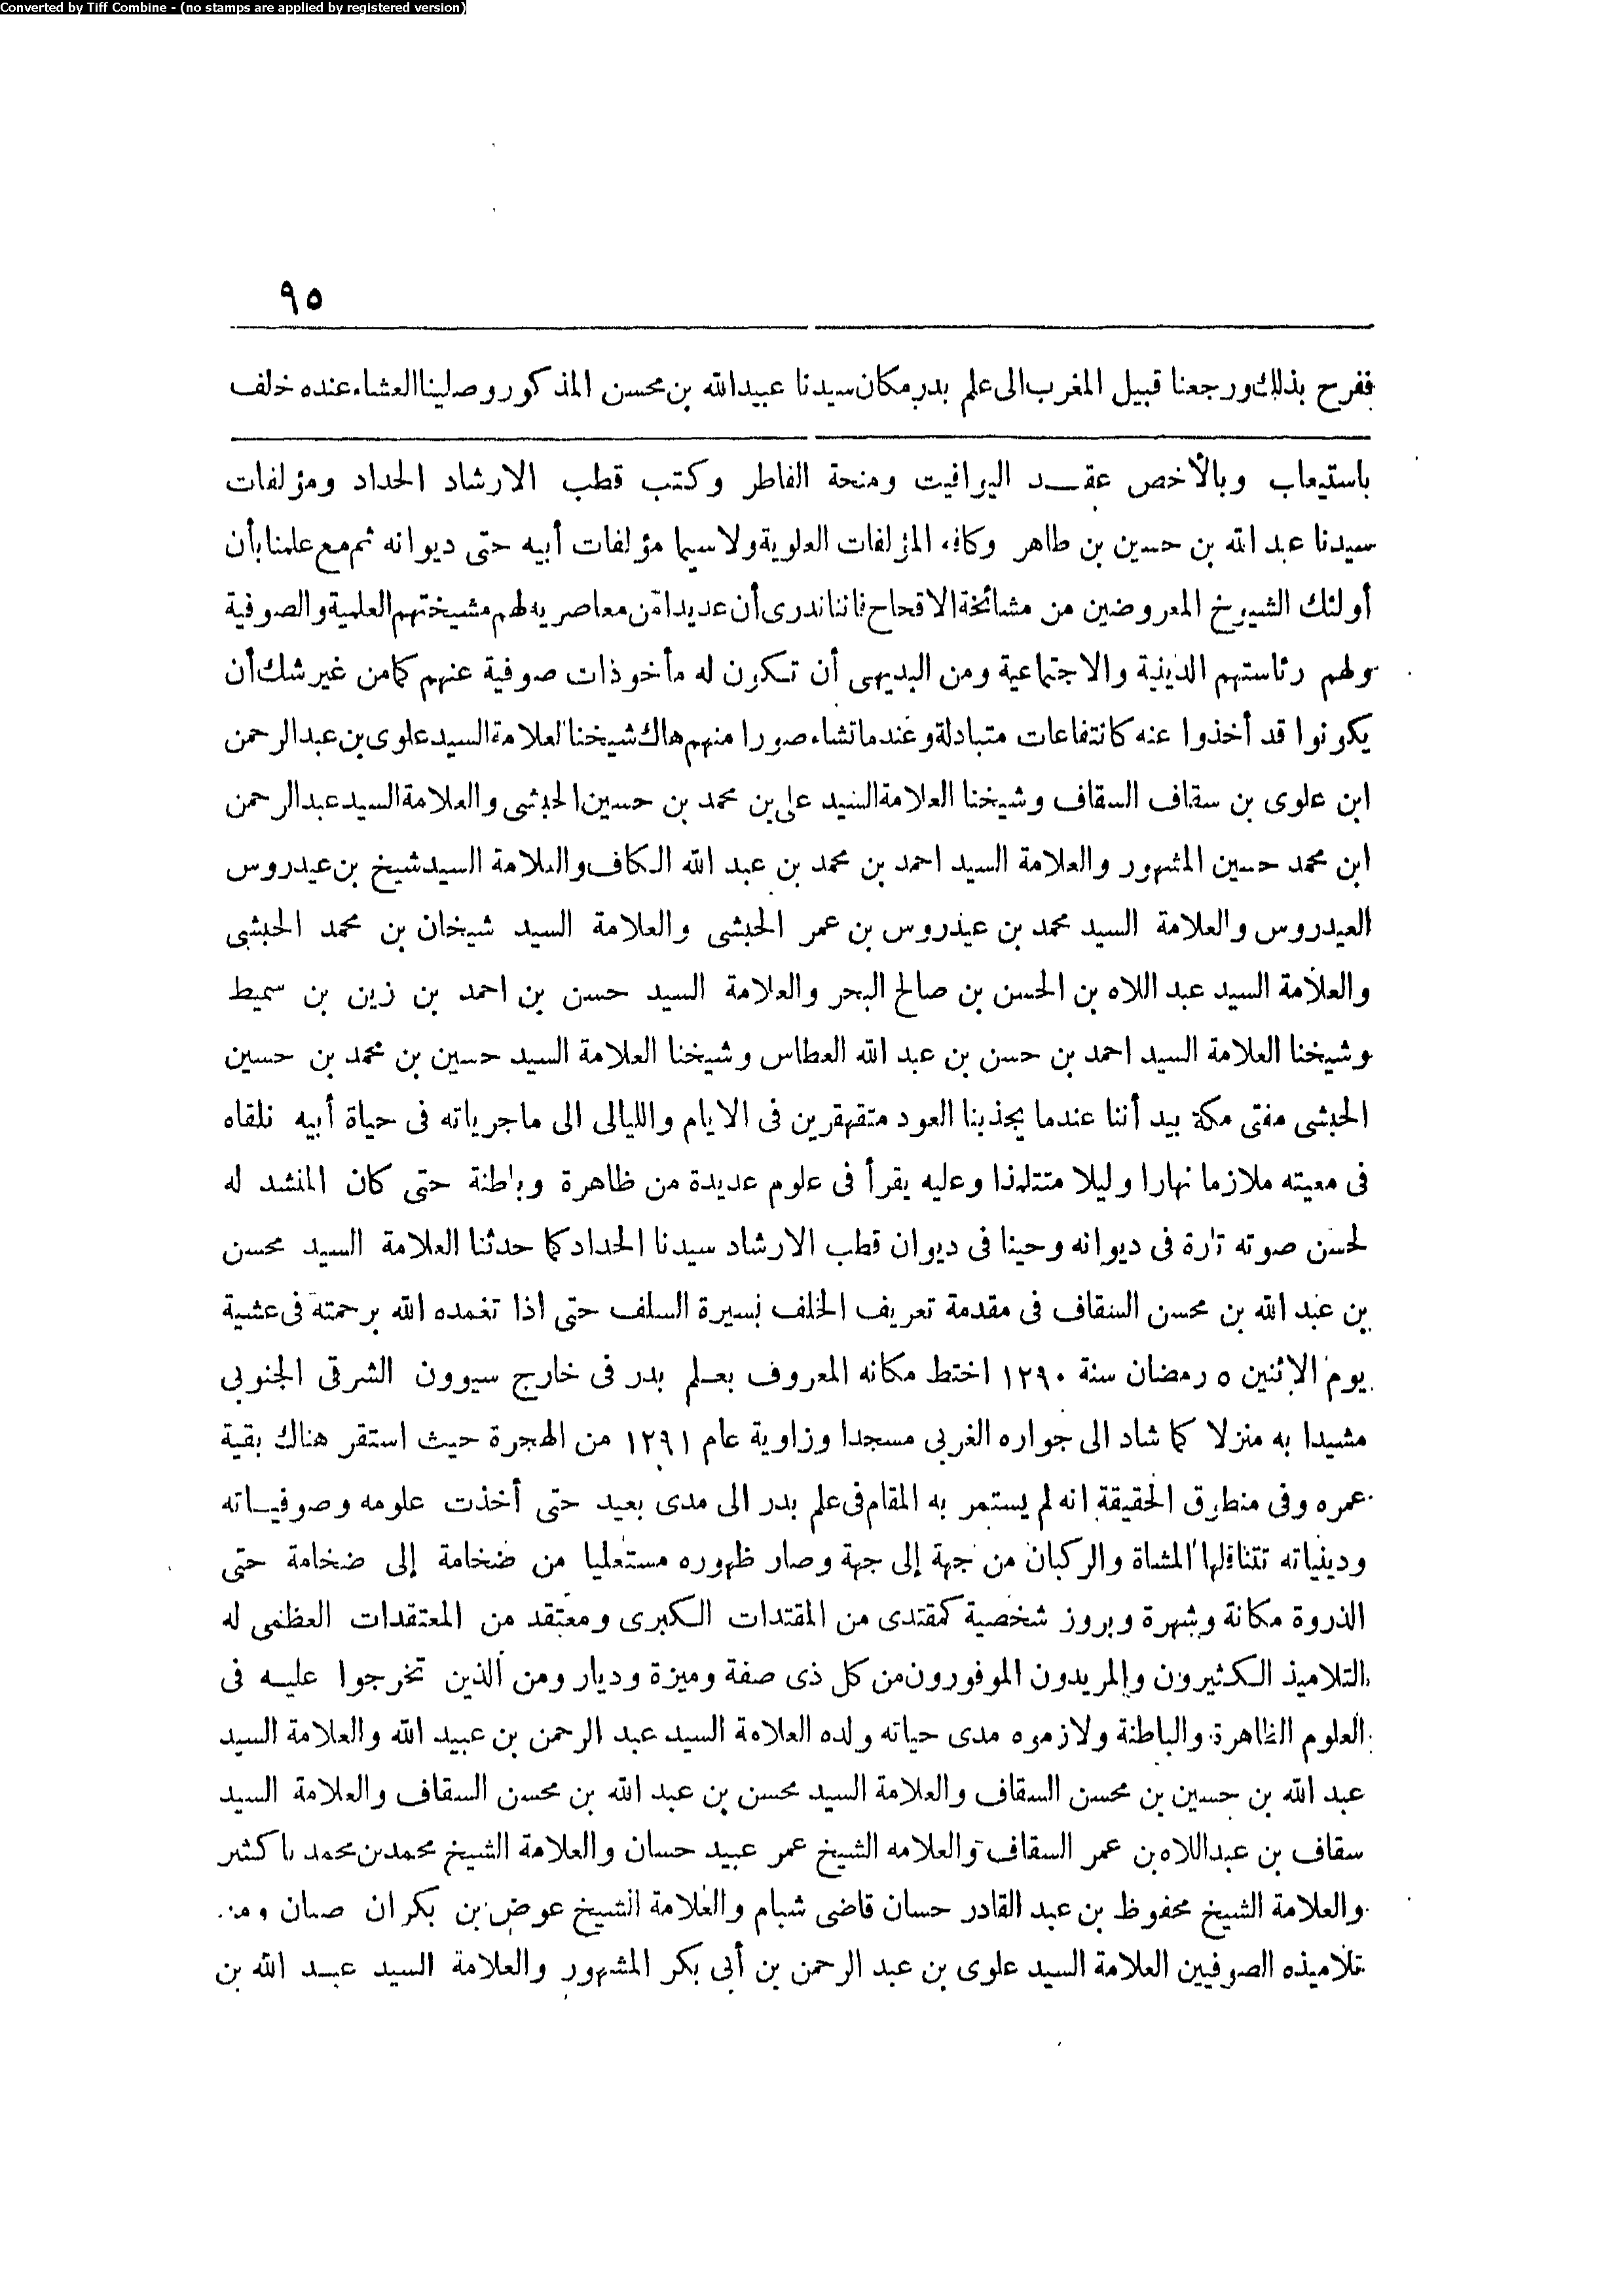 Converted by Tiff Combine - (no stamps are applied by registered version)
٩٥
ففرح بذلك ورجعنا قبيل المغرب الى علم بدر مكان سيدنا عبيد الله بن محسن المذكور وصلينا العشاء عنده خلف
باستيعاب وبالأخص عقد اليواقيت ومنحة الفاطر وكتب قطب الارشاد الحداد ومؤلفات
سيدنا عبد الله بن حسين بن طاهر وكافة المؤلفات العلوية ولاسيما مؤلفات أبيه حتى ديوانه ثم مع علمنا بأن
أولئك الشيوخ المعروضين من مشائخة الاقحاح فاننا ندرى أن عديدا من معاصريه لهم مشيختهم العلمية والصوفية
ولهم رئاستهم الدينية والاجتماعية ومن البديهى أن تكون له مأخوذات صوفية عنهم كما من غير شك أن
يكونوا قد أخذوا عنه كانتفاعات متبادلة وعندما تشاء صورا منهم هاك شيخنا العلامة السيد علوى بن عبد الرحمن
ابن علوى بن سقاف السقاف وشيخنا العلامة السيد على بن محمد بن حسين الحبشى والعلامة السيد عبد الرحمن
ابن محمد حسين المشهور والعلامة السيد احمد بن محمد بن عبد الله الكاف والعلامة السيد شيخ بن عيدروس
العيدروس والعلامة السيد محمد بن عيدروس بن عمر الحبشى والعلامة السيد شيخان بن محمد الحبشى
والعلامة السيد عبد اللاه بن الحسن بن صالح البحر والعلامة السيد حسن بن احمد بن زين بن سميط
وشيخنا العلامة السيد احمد بن حسن بن عبد الله العطاس وشيخنا العلامة السيد حسين بن محمد بن حسين
الحبشى مفتى مكة بيد أننا عندما يجذبنا العود متقهقرين فى الايام والليالى الى ماجرياته فى حياة أبيه نلقاه
فى معيته ملازما نهارا وليلا متتلمذا وعليه يقرأ فى علوم عديدة من ظاهرة وباطنة حتى كان المنشد له
لحسن صوته تارة فى ديوانه وحينا فى ديوان قطب الارشاد سيدنا الحداد كما حدثنا العلامة السيد محسن
بن عبد الله بن محسن السقاف فى مقدمة تعريف الخلف بسيرة السلف حتى اذا تغمده الله برحمته فى عشية
يوم الاثنين ٥ رمضان سنة ١٢٩٠ اختط مكانه المعروف بعلم بدر فى خارج سيوون الشرقى الجنوبى
مشيدا به منزلا كما شاد الى جواره الغربى مسجدا وزاوية عام ١٢٩١ من الهجرة حيث استقر هناك بقية
عمره وفى منطوق الحقيقة انه لم يستمر به المقام فى علم بدر الى مدى بعيد حتى أخذت علومه وصوفياته
ودينياته تتناقلها المشاة والركبان من جهة إلى جهة وصار ظهوره مستعليا من ضخامة إلى ضخامة حتى
الذروة مكانة وشهرة وبروز شخصية كمقتدى من المقتدات الكبرى ومعتقد من المعتقدات العظمى له
التلاميذ الكثيرون والمريدون الموفورون من كل ذى صفة وميزة وديار ومن الذين تخرجوا عليه فى
العلوم الظاهرة والباطنة ولازموه مدى حياته ولده العلامة السيد عبد الرحمن بن عبيد الله والعلامة السيد
عبد الله بن حسين بن محسن السقاف والعلامة السيد محسن بن عبد الله بن محسن السقاف والعلامة السيد
سقاف بن عبداللاه بن عمر السقاف والعلامه الشيخ عمر عبيد حسان والعلامة الشيخ محمد بن محمد باكثير
والعلامة الشيخ محفوظ بن عبد القادر حسان قاضى شبام والعلامة الشيخ عوض بن بكران صبان ومن
تلاميذه الصوفيين العلامة السيد علوى بن عبد الرحمن بن أبى بكر المشهور والعلامة السيد عبد الله بن